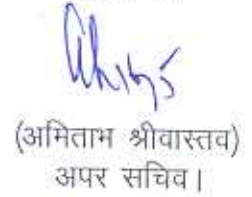 (अमिताभ श्रीवास्तव)
अपर सचिव।